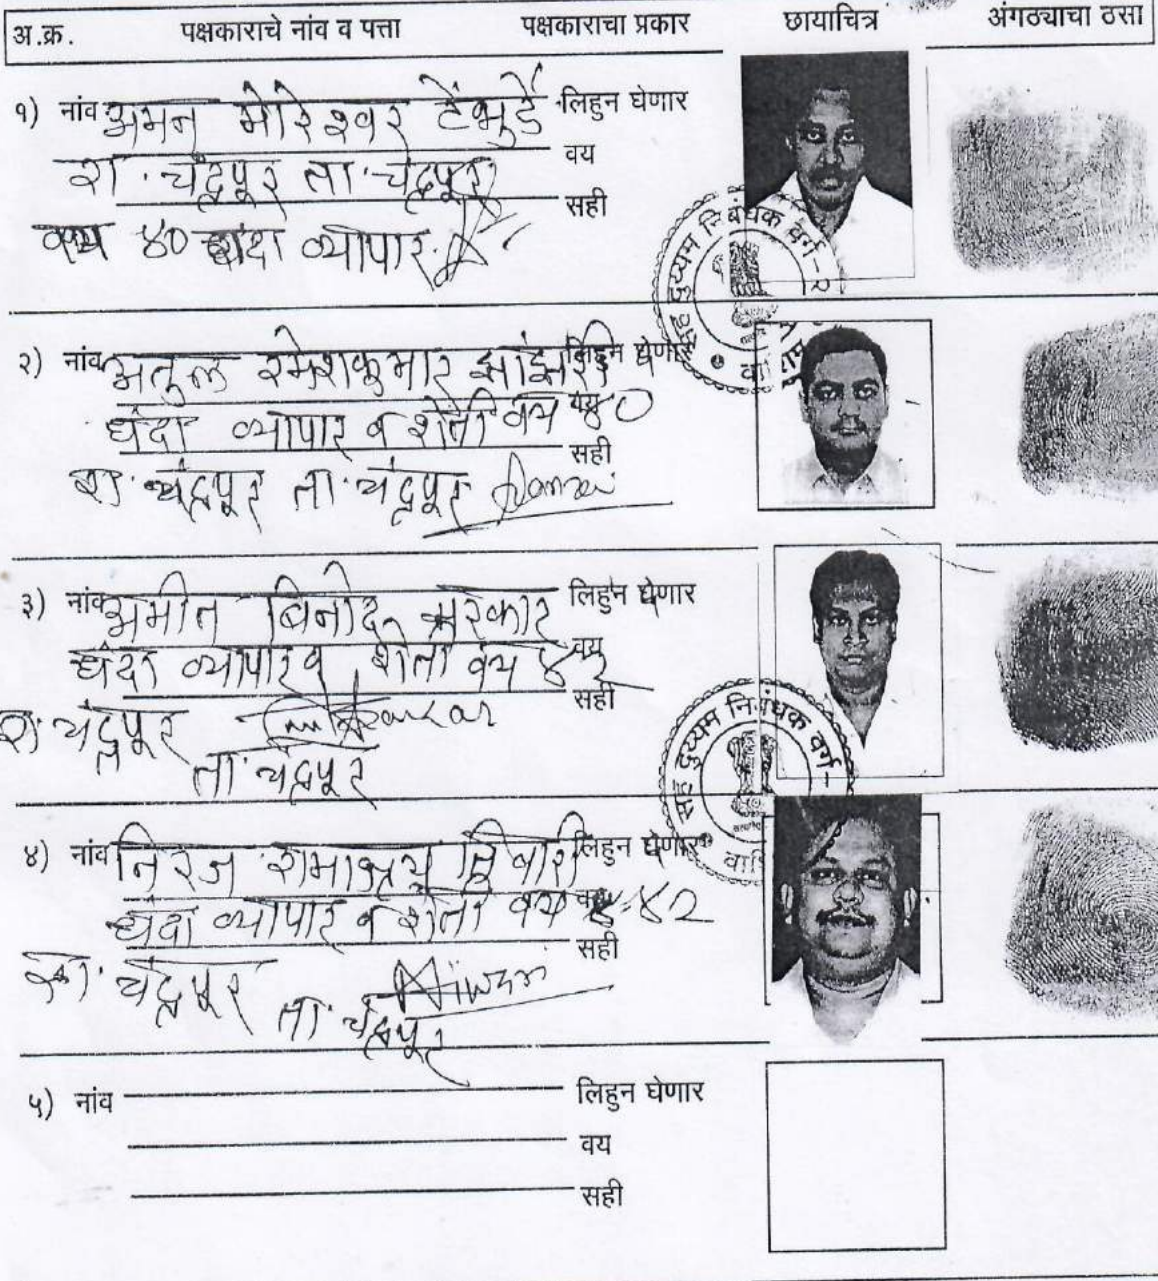 अ.क्र. पक्षकाराचे नांव व पत्ता पक्षकाराचा प्रकार छायाचित्र अंगठ्याचा ठसा
१) नांव अमन मोरेश्वर टेंभुर्डे लिहुन घेणार
वय
रा. चंद्रपूर ता. चंद्रपूर
सही
वय ४० धंदा व्यापार
सह दुय्यम निबंधक वर्ग-
२) नांव अतुल रमेशकुमार लिहुन घेणार
धंदा व्यापार व शेती वय वय ४०
सही
रा. चंद्रपूर ता. चंद्रपूर
३) नांव अमीत बिनोद सरकार लिहुन घेणार
वय
धंदा व्यापार व शेती वय ४२
सही
रा. चंद्रपूर
ता. चंद्रपूर
सह दुय्यम निबंधक वर्ग-
४) नांव निरज रामाश्रय तिवारी लिहुन घेणार
धंदा व्यापार व शेती वय वय ४२
सही
रा. चंद्रपूर ता. चंद्रपूर
५) नांव लिहुन घेणार
वय
सही